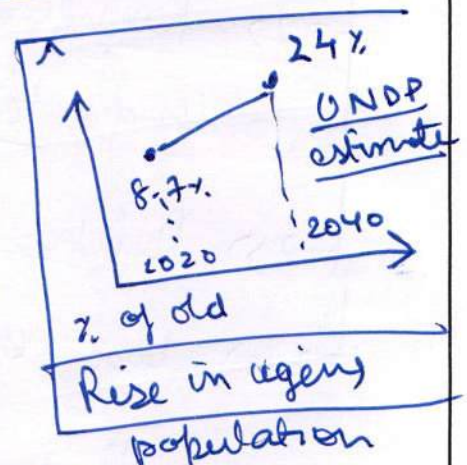 24%
UNDP
estimate
8.7%
2020
2040
% of old
Rise in ageing
population